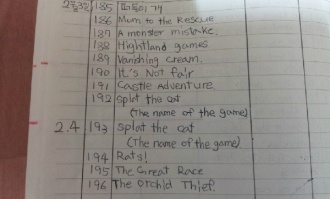 185
186 Mum to the Rescue
187 A monster mistake.
138 Hightland games.
189 Vanishing cream.
190 It's Not fair
191 Castle Adventure.
192 splot the cat
(The name of the game)
2.4 193 splat the cat
(The name of the game)
194 Rats!
195 The Great Race
196 The Orchid Thief.